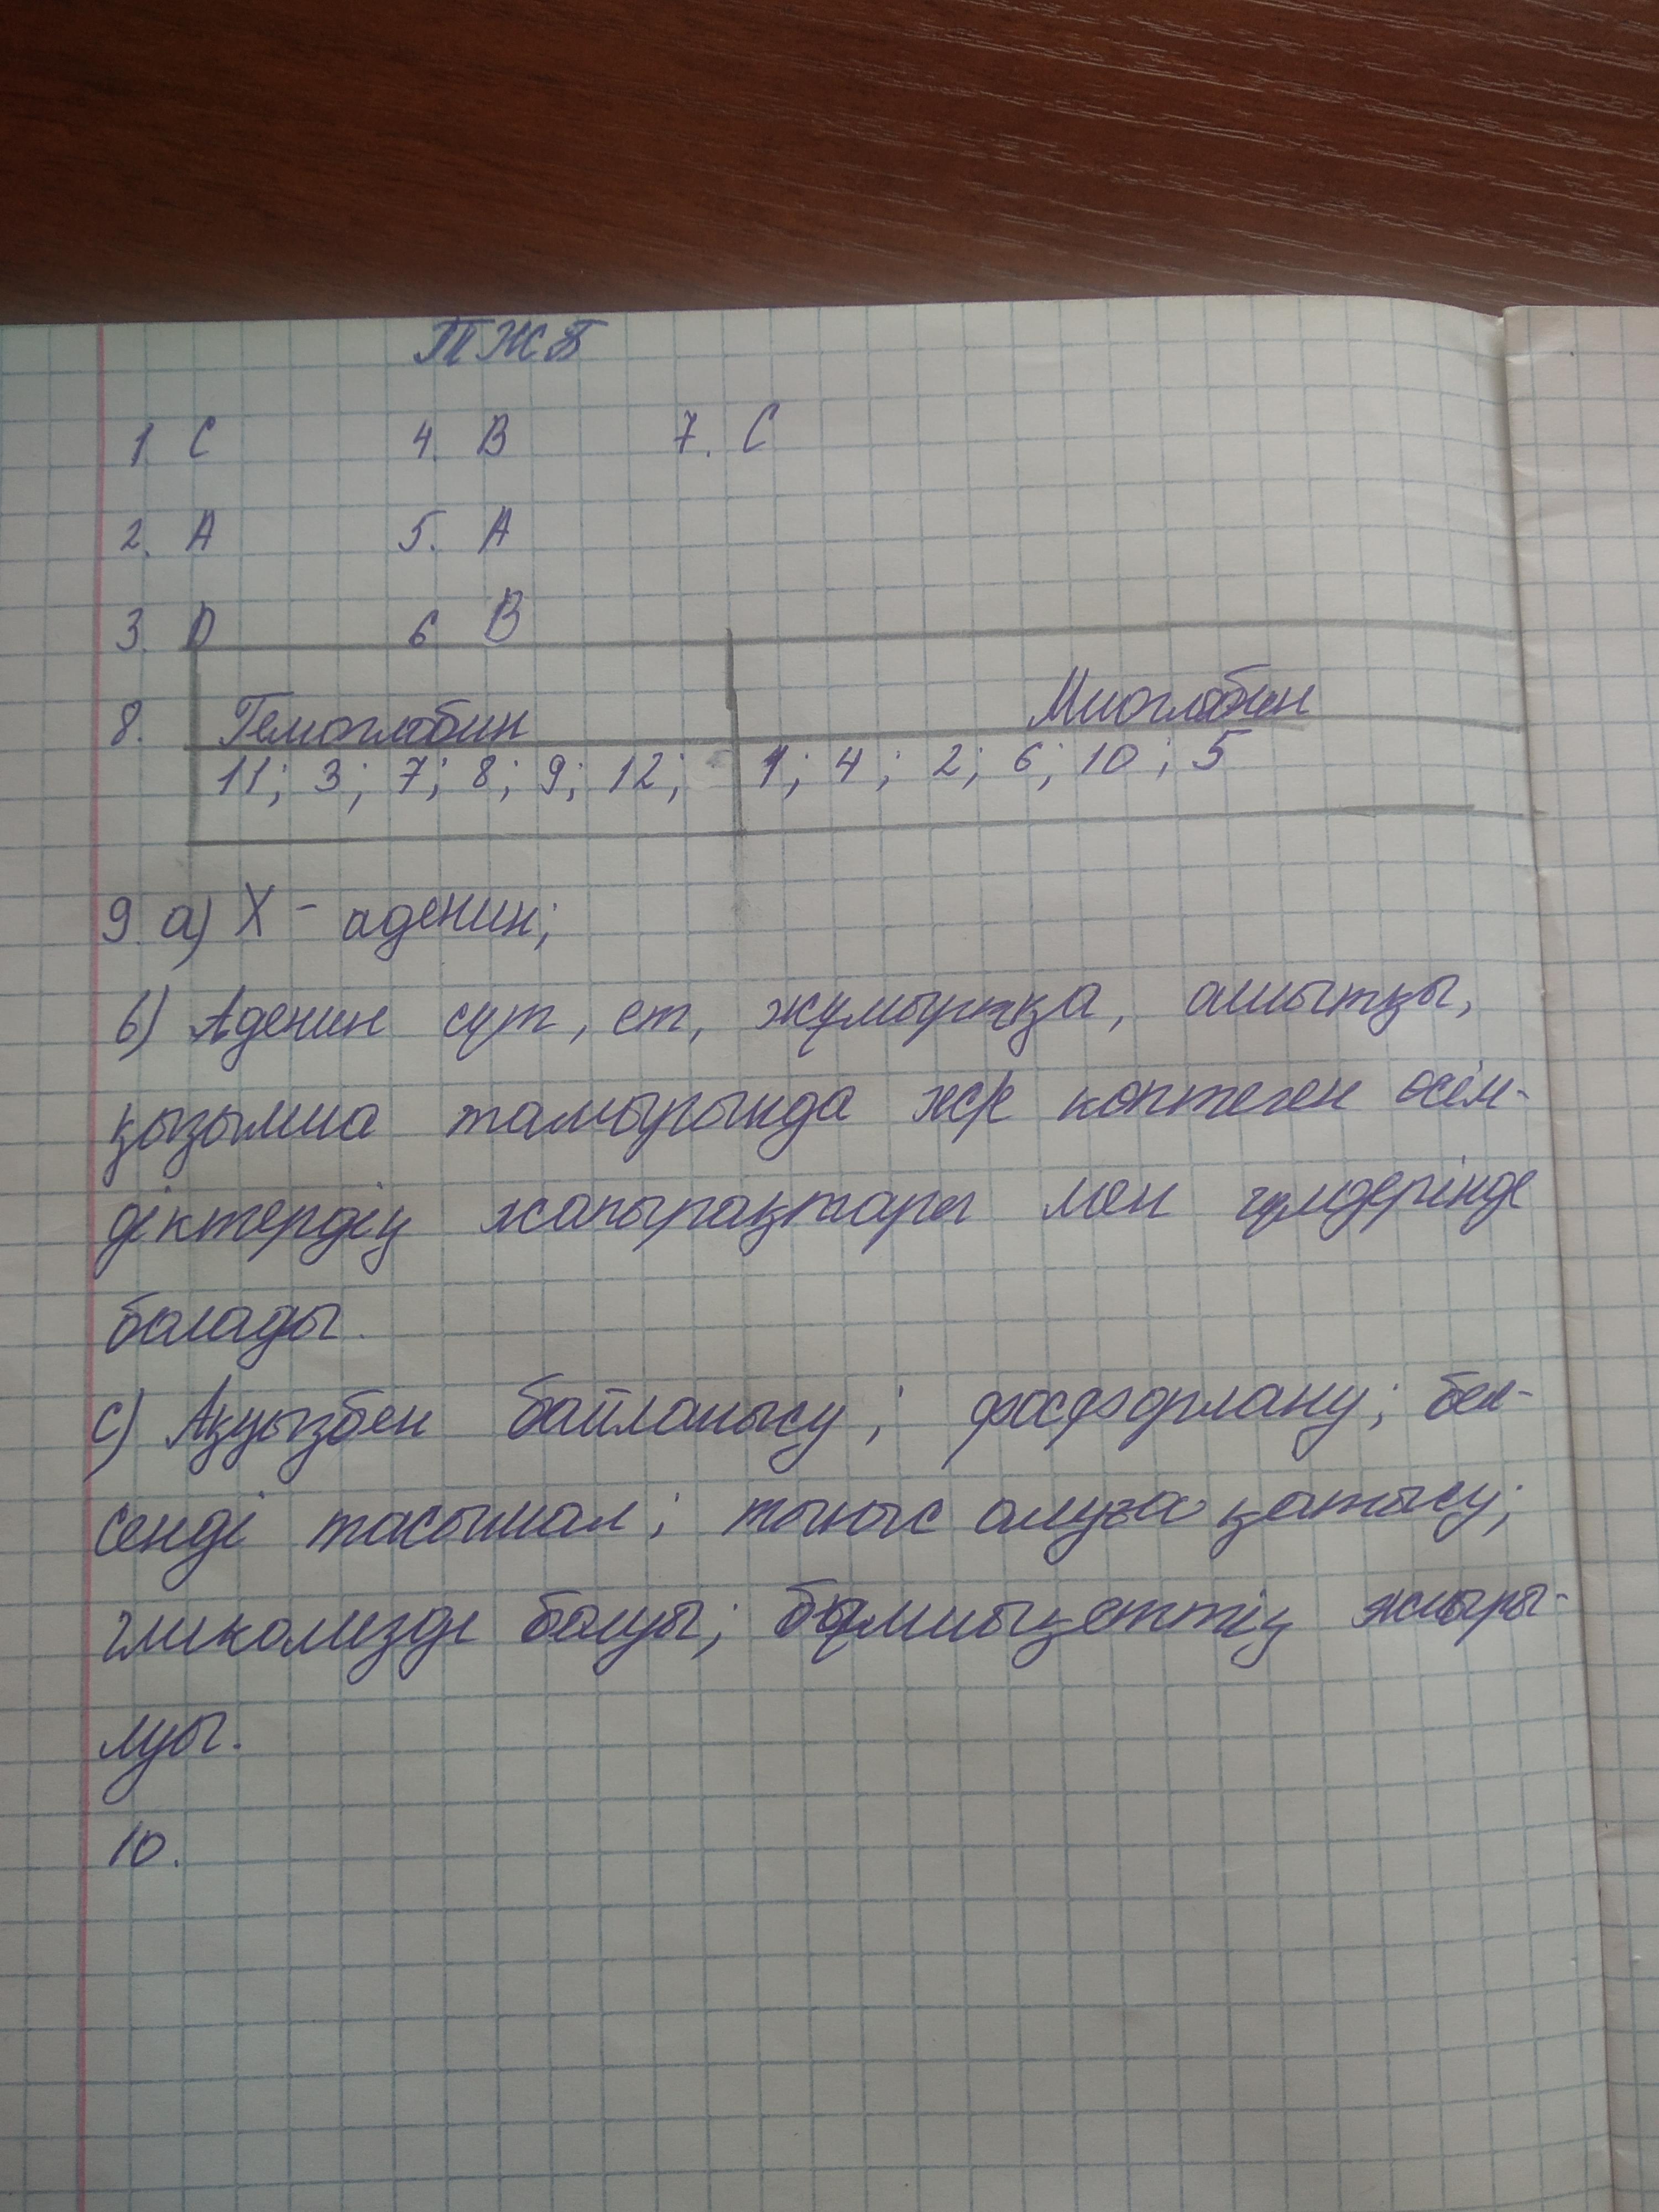 ТЖБ
1. C 4. B 7. C
2. A 5. A
3. D 6 B
8. Гемоглобин Миоглобин
11; 3; 7; 8; 9; 12; 1; 4; 2; 6; 10; 5
9. a) X - аденин;
b) Аденин сүт, ет, жұмыртқа, ашытқы,
қызылша тамырында жғе көптеген өсім-
діктердің жапырақтары мен гүлдерінде
болады.
c) Ақуызбен байланысу; фосфорлану; бел-
сенді тасымал; тыныс алуға қатысу;
гликолизде болуы; бұлшықеттің жиыры-
луы.
10.